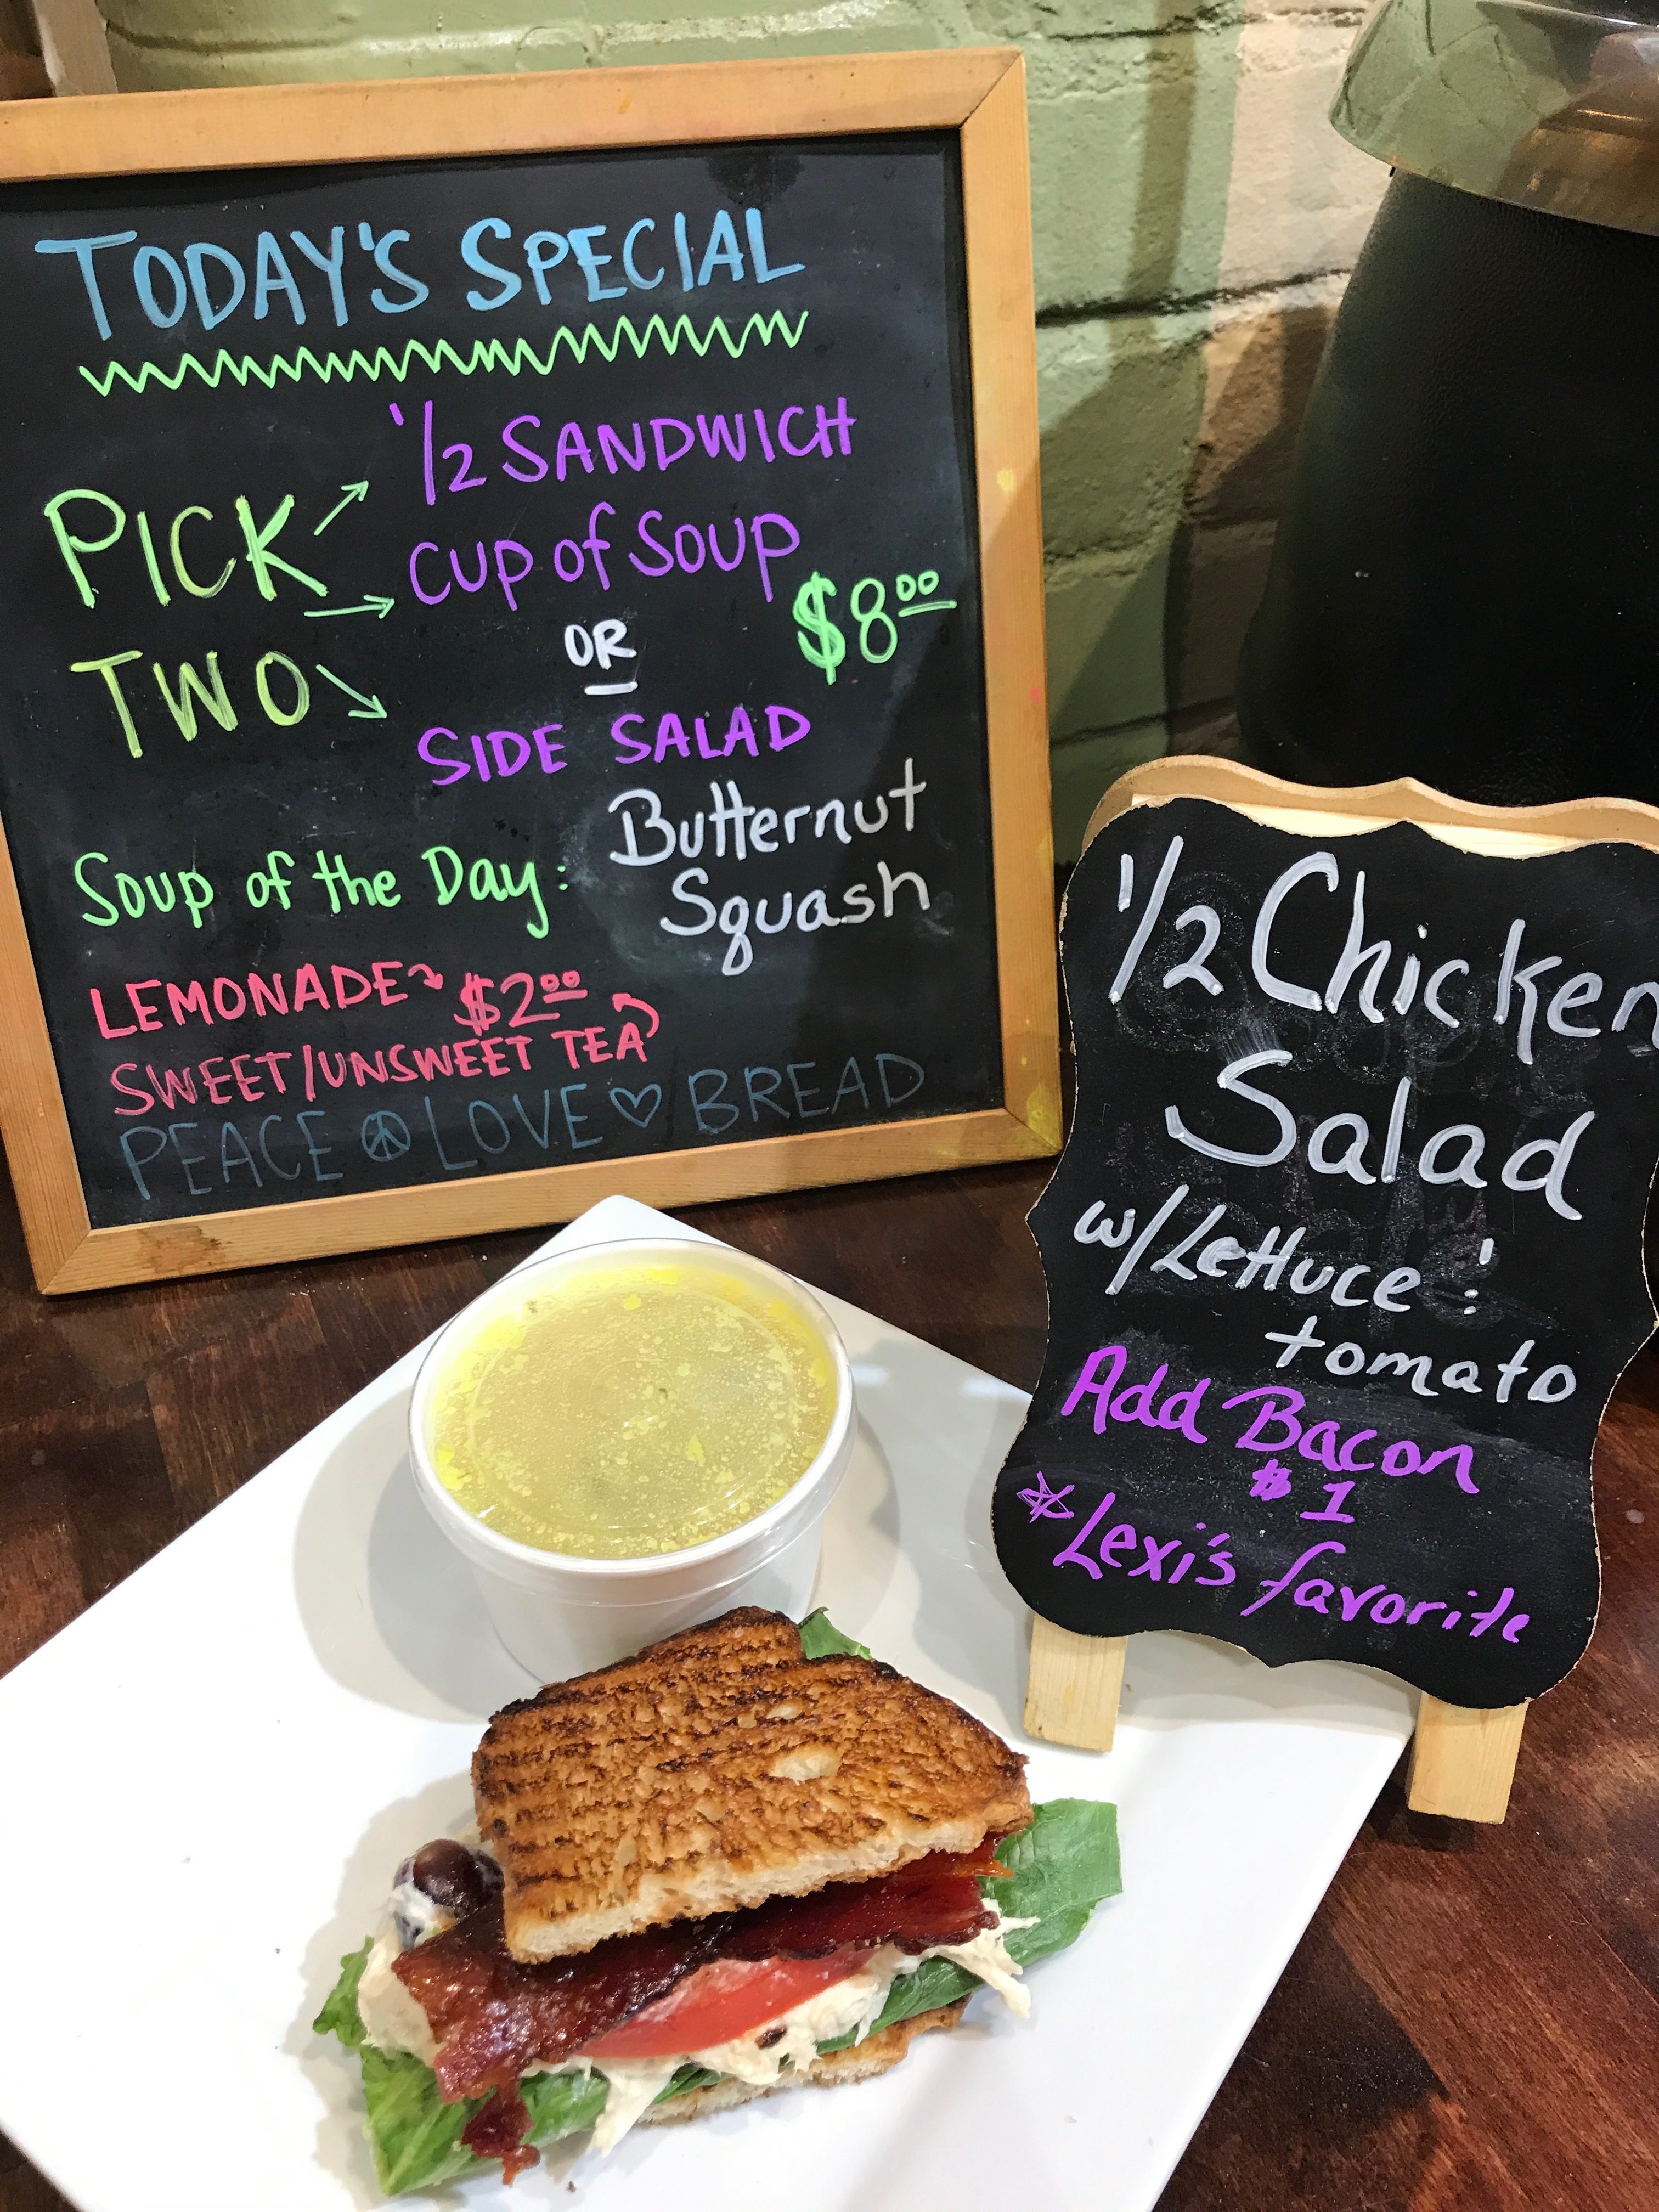 TODAY'S SPECIAL
PICK
TWO
1/2 SANDWICH
CUP of SOUP
OR
$8.00
SIDE SALAD
Soup of the Day: Butternut
Squash
LEMONADE $2.00
SWEET/UNSWEET TEA
PEACE ☮ LOVE ♡ BREAD
1/2 Chicken
Salad
w/Lettuce :
tomato
Add Bacon
$1
*Lexi's favorite